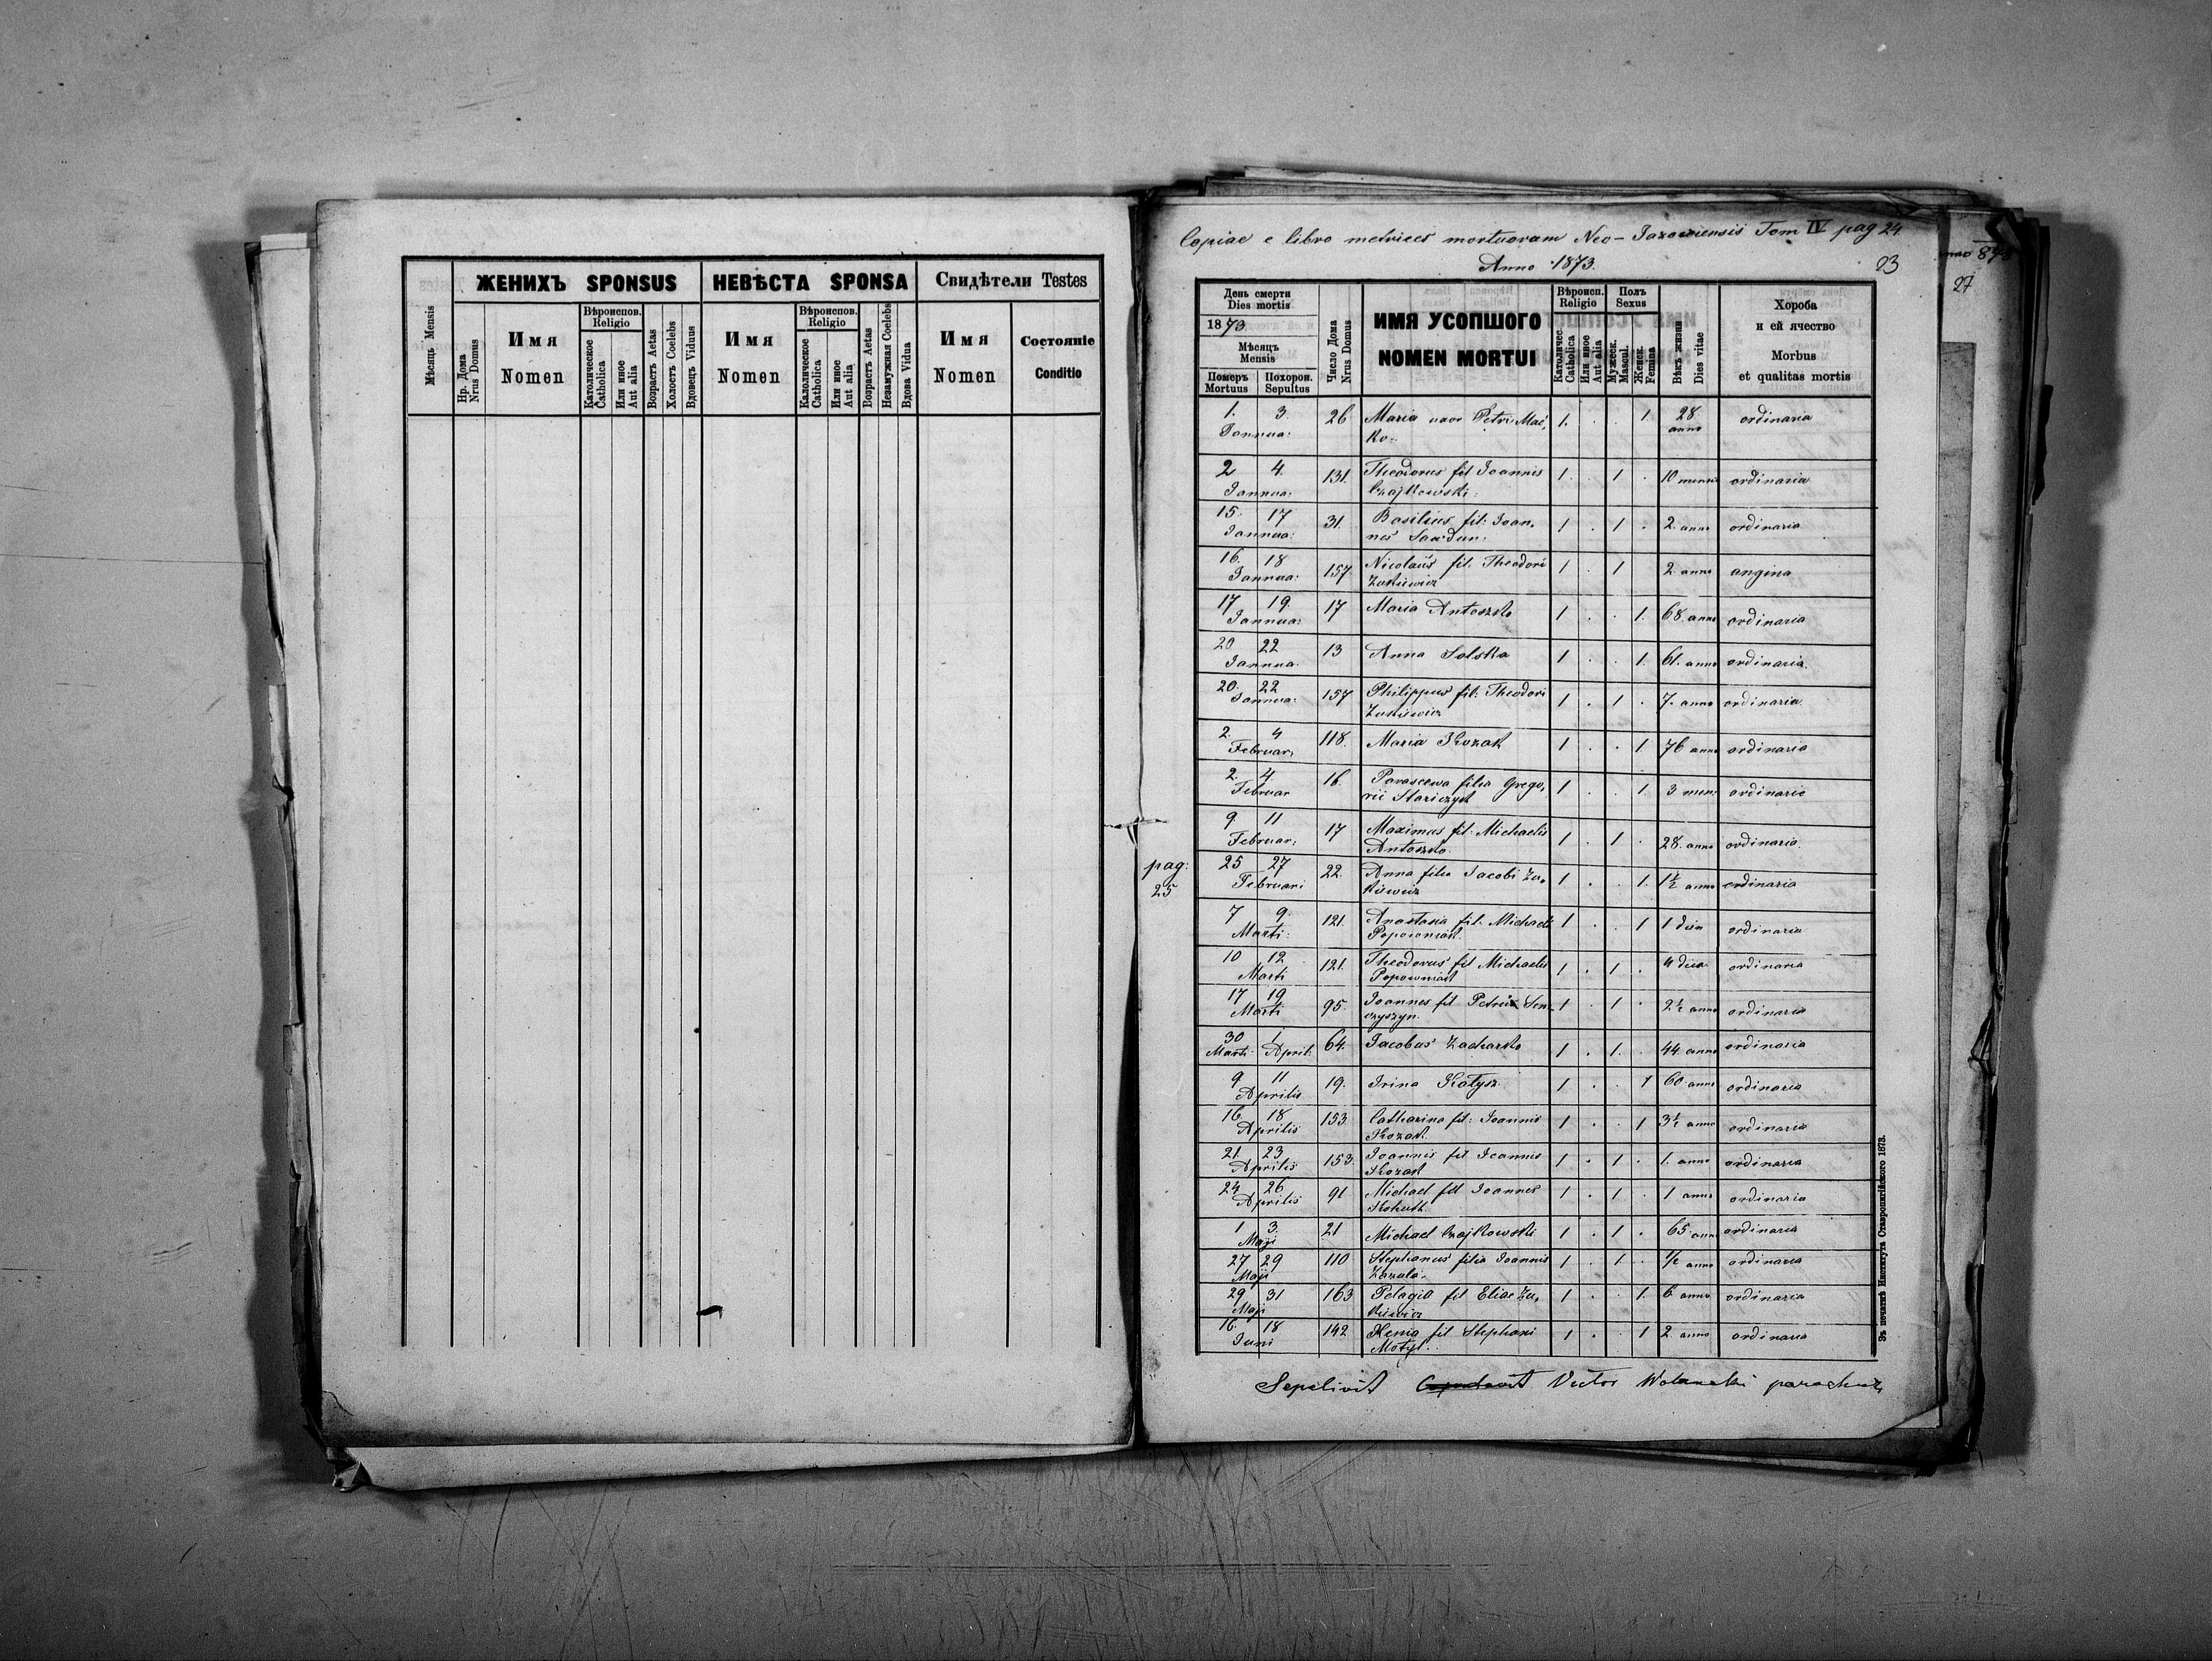 ЖЕНИХЪ SPONSUS
НЕВѢСТА SPONSA
Свидѣтели Testes
Мѣсяць Mensis
Нр. Дома
Nrus Domus
Имя
Nomen
Вѣроиспов.
Religio
Католическое
Catholica
Или иное
Aut alia
Возрастъ Aetas
Холостъ Coelebs
Вдовецъ Viduus
Имя
Nomen
Вѣроиспов.
Religio
Католическое
Catholica
Или иное
Aut alia
Возрастъ Aetas
Незамужная Coelebs
Вдова Vidua
Имя
Nomen
Состояніе
Conditio
Copiae e libro metrices mortuorum Neo-Jazowiensis Tom IV pag 24
Anno 1873.
23
27
День смерти
Dies mortis
1873
Мѣсяцъ
Mensis
Померъ
Mortuus
Похорон.
Sepultus
Число Дома
Nrus Domus
ИМЯ УСОПШОГО
NOMEN MORTUI
Вѣроисп.
Religio
Католичес.
Catholica
Или иное
Aut alia
Полъ
Sexus
Мужеск.
Mascul.
Женск.
Femina
Вѣкъ жизни
Dies vitae
Хороба
и ей ячество
Morbus
et qualitas mortis
1. 3. 26 Maria uxor Petri Mać, 1. . . 1. 28. ordinaria
Jannua: ko. anno
2 4. 131. Theodorus fil Joannis 1. . 1 . 10 mensis ordinaria
Jannua: Czajkowski.
15. 17 31. Basilius fil: Joan, 1 . 1 . 2. anno ordinaria
Jannua:
16. 18 157 Nicolaus fil. Theodori 1 . 1 2. anno angina
Jannua: Zukiewicz
17 19. 17 Maria Antoszko 1 . . 1. 68. anno ordinaria
Jannua:
20 22 13 Anna Solska 1 . . 1. 61. anno ordinaria.
Jannua.
20. 22 157 Philippus fil: Theodori 1 . 1 . 7. anno ordinaria.
Jannua: Zukiewicz
2. 4 118. Maria Kozak 1 . . 1 76 anno ordinaria
Februar,
2. 4. 16. Parascewa filia Grego, 1 . . 1. 3 mens ordinaria
Februar rii
9. 11 17 Maximus fil: Michaelis 1 . 1 . 28. anno ordinaria.
Februar: Antoszko.
pag:
25
25 27 22. Anna filia Jacobi Zu, 1 . . 1. 1½ anno ordinaria
Februari kiewicz
7 9. 121. Anastasia fil. Michaeli 1 . . 1 1 dien ordinaria
Marti: Popowniak.
10 12 121. Theodorus fil Michaelis 1 . 1 . 4 dies ordinaria
Marti Popowniak
17 19 95. Joannes fil Petri Sen- 1 . 1 . 2½ anno ordinaria
Marti czyszyn.
30 1 64. Jacobus Zacharko 1 . 1. . 44. anno ordinaria
Marti. April.
9 11 19. Irina Kołysz. 1 . . 1 60 anno ordinaria
Aprilis
16. 18 153. Catharina fil: Joannis 1 . . 1 3½ anno ordinaria
Aprilis Kozak.
21. 23 153. Joannis fil Joannis 1 . 1 . 1. anno ordinaria
Aprilis Kozak
24 26 91 Michael fil Joannes 1 . 1 . 1 anno ordinaria
Aprilis Kohutk.
1 3. 21 Michael Czajkowski 1 . 1 . 65. anno ordinaria
Maji
27 29 110 Stephanus filia Joannis 1 . 1 . ½ anno ordinaria
Maji Zazula.
29 31 163 Pelagia fil Eliae Zu, 1 . . 1. 6. anno ordinaria
Maji kiewicz
16. 18 142 Xenia fil Stephani 1 . . 1 2. anno ordinaria
Juni Motyl.
Sepelivit Victor Wolanski parochus
Зъ печатнѣ Института Ставропигійского 1873.